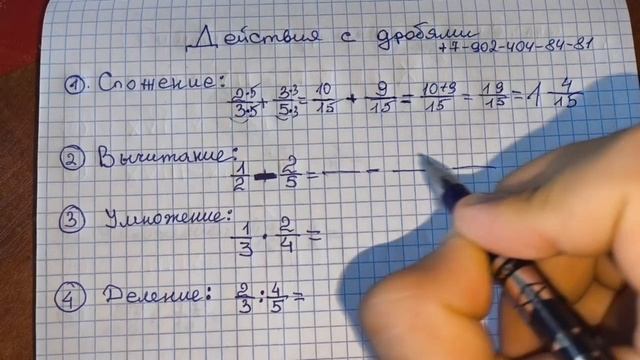 Действия с дробями
+7-902-404-84-81
① Сложение: 2·5/3·5 + 3·3/5·3 = 10/15 + 9/15 = 10+9/15 = 19/15 = 1 4/15
② Вычитание: 1/2 - 2/5 = — - —
③ Умножение: 1/3 · 2/4 =
④ Деление: 2/3 : 4/5 =